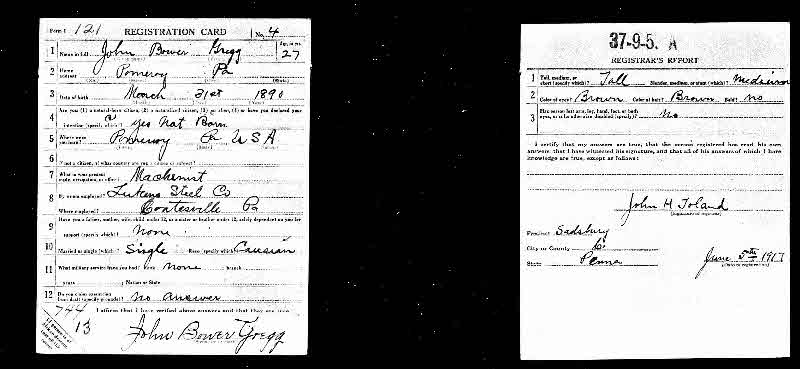 Form 1 121 REGISTRATION CARD No. 4
1 Name in full John Bower Gregg Age, in yrs. 27
2 Home address Pomeroy Pa
3 Date of birth March 31st 1890
4 Are you (1) a natural-born citizen, (2) a naturalized citizen, (3) an alien, (4) or have you declared your
intention (specify which)? yes Nat Born
5 Where were you born? Pomeroy Pa USA
6 If not a citizen, of what country are you a citizen or subject?
7 What is your present trade, occupation, or office? Machinist
8 By whom employed? Lukens Steel Co
Where employed? Coatesville Pa
9 Have you a father, mother, wife, child under 12, or a sister or brother under 12, solely dependent on you for
support (specify which)? None
10 Married or single (which)? Single Race (specify which)?
11 What military service have you had? Rank None branch
years ; Nation or State
12 Do you claim exemption from draft (specify grounds)? No answer
744 I affirm that I have verified above answers and that they are true.
13
John Bower Gregg
37-9-5. A
REGISTRAR'S REPORT
1 Tall, medium, or short (specify which)? Tall Slender, medium, or stout (which)?
2 Color of eyes? Brown Color of hair? Brown Bald? No
3 Has person lost arm, leg, hand, foot, or both eyes, or is he otherwise disabled (specify)? No
I certify that my answers are true, that the person registered has read his own
answers, that I have witnessed his signature, and that all of his answers of which I have
knowledge are true, except as follows:
John H Toland
(Signature of registrar)
Precinct Sadsbury
City or County C.
State Penna
June 5th 1917
(Date of registration)